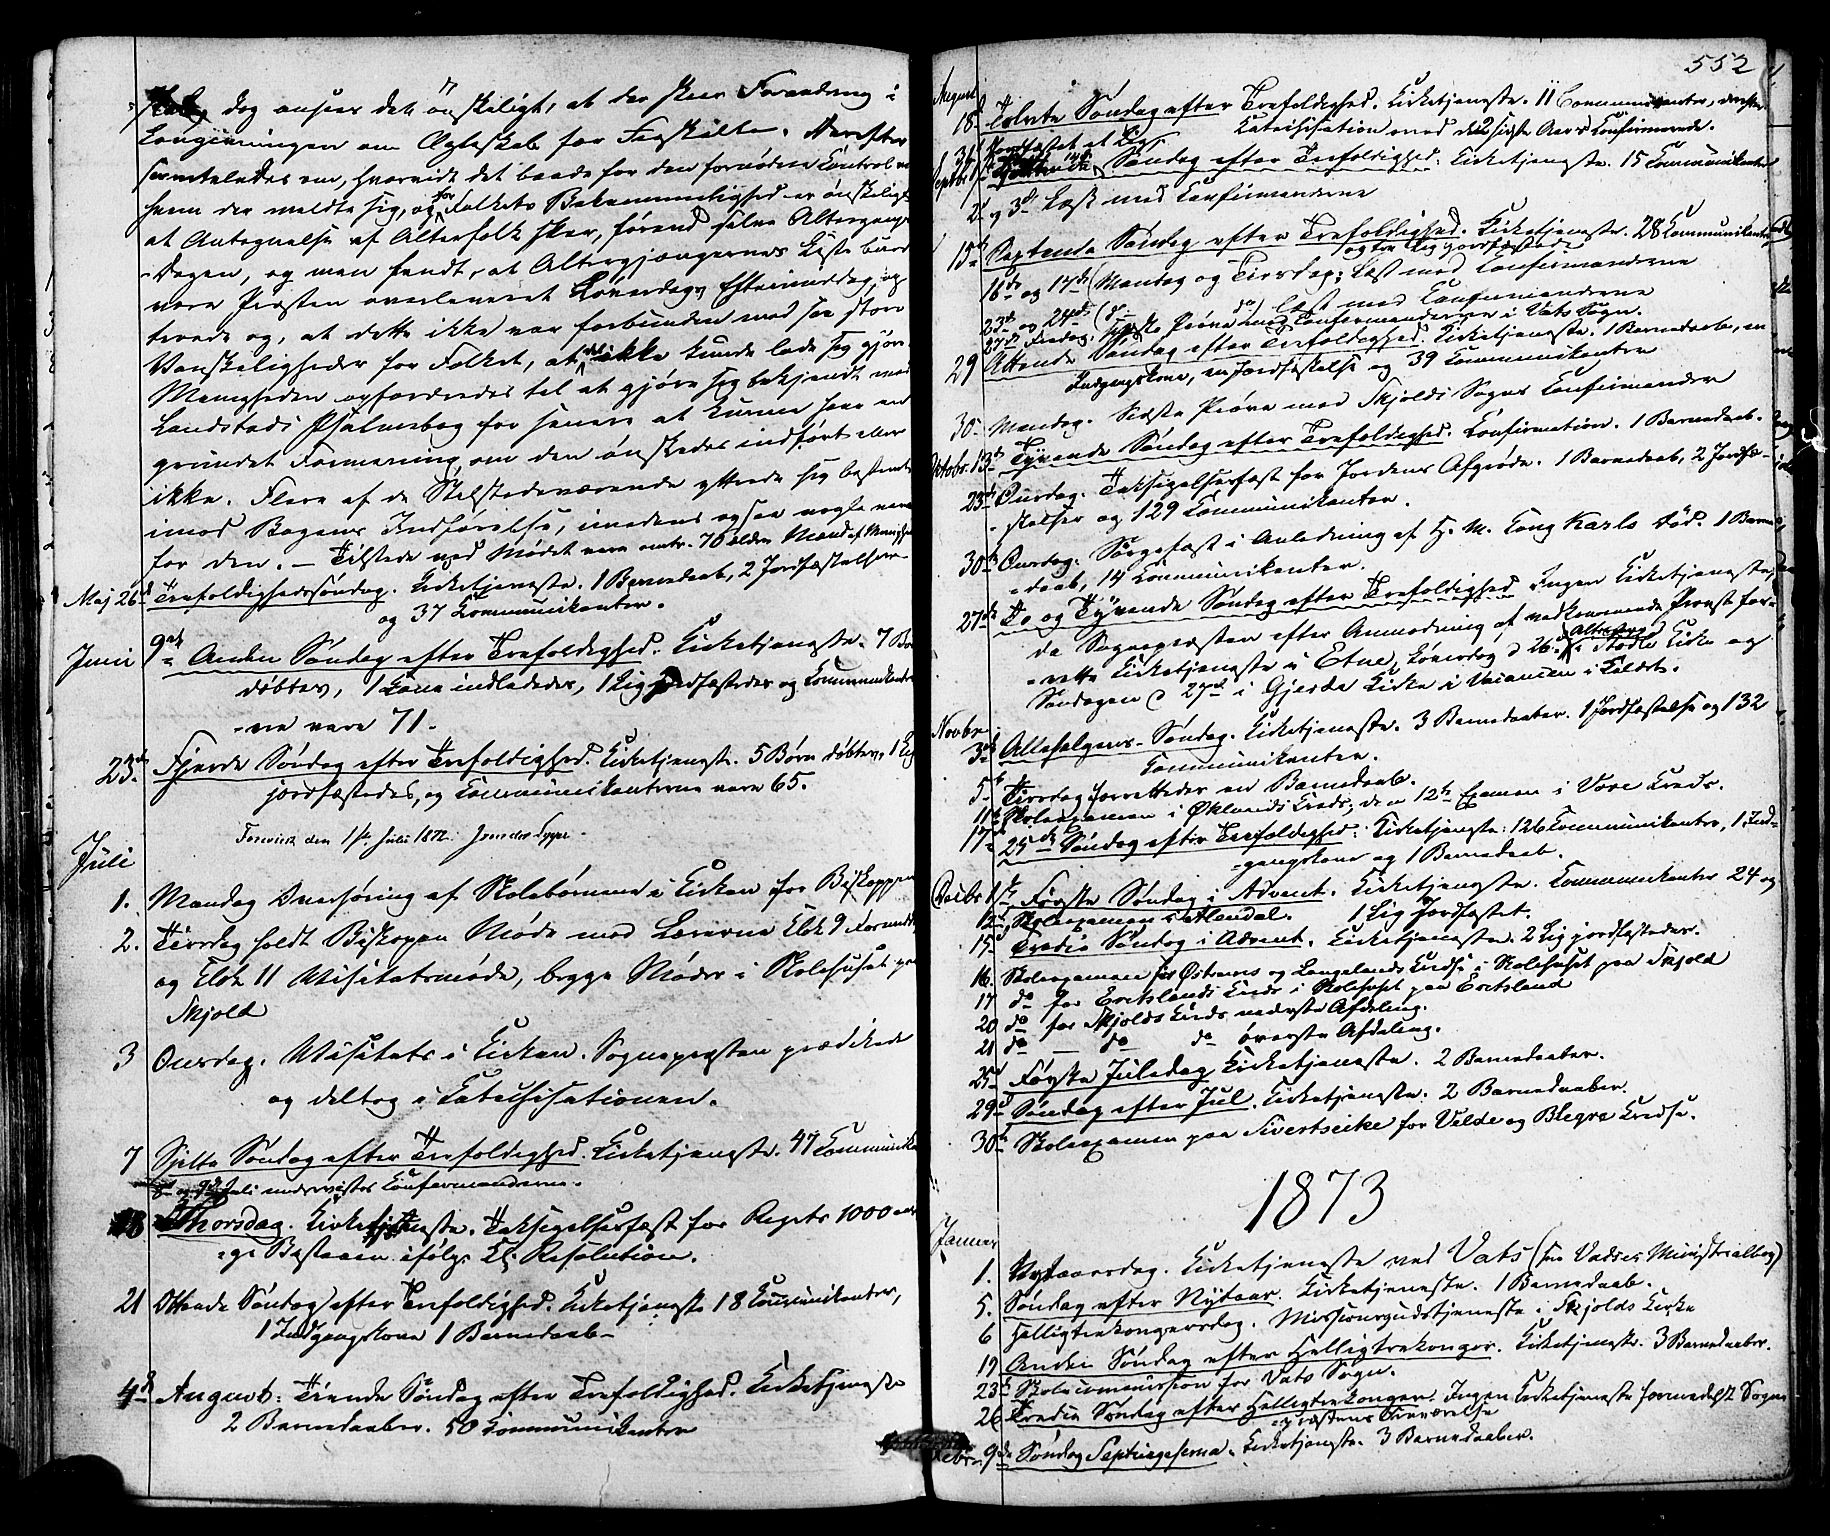 dog ansees det ønskeligt, at der skeer Forandring i
Lovgivningen om Ægteskab for Fraskilte. Derefter
samtaledes om, hvorvidt det baade for den fornødne Control med
hvem der meldte sig, og for Folkets Bekvemmelighed er ønskeligt
at Antegnelse af Alterfolk skeer, førend selve Altergangs-
Dagen, og man fandt, at Altergjængernes Liste burde
være Præsten overleveret Løverdags Eftermiddag, og
troede og, at dette ikke var forbunden med saa store
Vanskeligheder for Folket, at det ikke kunde lade sig gjøre
Menigheden opfordredes til at gjøre sig bekjendt med
Landstads Psalmebog for senere at kunne have en
grundet Formening, om den ønskedes indført eller
ikke. Flere af de Tilstedeværende yttrede sig bestemt
imod Bogens Indførelse, imedens ogsaa nogle vare
for den. – Tilstede ved Mødet vare omtr. 70 ældre Mænd af Menigh.
Maj 26 Trefoldighedssøndag. Kirketjeneste. 1 Barnedaab, 2 Jordfæstelser
og 37 Kommunikanter.
Juni 9de Anden Søndag efter Trefoldighed. Kirketjeneste. 7 Børn
døbtes, 1 Kone indlededes, 1 Lig jordfæstedes og Kommunikanter-
ne vare 71.
23de Fjerde Søndag efter Trefoldighed. Kirketjeneste. 5 Børn døbtes, 1 Lig
jordfæstedes, og Kommunikanterne vare 65.
den 1ste Juli 1872.
Juli
1. Mandag Overhøring af Skolebørnene i Kirken for Biskoppen
2. Tirsdag holdt Biskopen Møde med Lærerne Klok 9 Formidd.
og Klok 11 Visitatsmøde, begge Møder i Skolehuset paa
Skjold
3 Onsdag. Visitats i Kirken. Sognepræsten prædikede
og deltog i Catechisationen.
7 Sjette Søndag efter Trefoldighed. Kirketjeneste. 47 Kommunika
8de og 9de Juli underviistes Confirmanderne.
18 Thorsdag. Kirketjeneste. Taksigelsesfest for Rigets 1000 aar-
ige Bestaaen ifølge Kl. Resolution.
21 Ottende Søndag efter Trefoldighed. Kirketjeneste 18 Kommunikanter,
1 Indgangskone 1 Barnedaab
4de August: Tiende Søndag efter Trefoldighed. Kirketjeneste
2 Barnedaaber. 50 Kommunikanter
552
August
18 Tolvte Søndag efter Trefoldighed. Kirketjeneste. 11 Communikanter, derefter
Katechisation med de 2 sidste Aars Confirmerede.
31 Jordfæstet et Lig
Septbr. 1 14de Søndag efter Trefoldighed. Kirketjeneste. 15 Kommunikanter
2 og 3de Læst med Konfirmanderne
15de Søndag efter Trefoldighed. Kirketjeneste. 28 Kommunikanter
og tre Lig jordfæstede
16de og 17de (Mandag og Tirsdag) Læst med Konfirmanderne
23de og 24de (do do) Læst med Konfirmanderne
27de Fredag. Sidste Prøve med Konfirmanderne i Vats Sogn.
29 Attende Søndag efter Trefoldighed. Kirketjeneste. 1 Barnedaab, en
Indgangskone, en Jordfæstelse og 39 Kommunikanter
30 Mandag. Sidste Prøve med Skjolds Sogns Confirmander
Oktobr. 13de Tyvende Søndag efter Trefoldighed. Konfirmation. 1 Barnedaab.
23de Onsdag. Taksigelsesfest for Jordens Afgrøde. 1 Barnedaab, 2 Jordfæ-
stelser og 129 Kommunikanter.
30de Onsdag. Sørgefest i Anledning af H. M. Kong Karls Død. 1 Barne-
daab, 14 Kommunikanter.
27de To og Tyvende Søndag efter Trefoldighed Ingen Kirketjeneste,
da Sognepræsten efter Anmodning af vedkommende Provst for-
rettede Kirketjeneste i Etne, Løverdag d 26de Altergang i Stødle Kirke og
Søndagen d 27de i Gjerde Kirke i Vacancen i Kaldet.
Novbr
3de Allehelgens-Søndag. Kirketjeneste. 3 Barnedaaber. 1 Jordfæstelse og 132
Kommunikanter.
5 Tirsdag forrettedes en Barnedaab.
11te Skoleexamen i Øklands Kreds; den 12te Examen i Vore Kreds.
17de 25de Søndag efter Trefoldighed: Kirketjeneste: 126 Kommunikanter, 1 Ind-
gangskone og 1 Barnedaab.
Decbr 1ste Første Søndag i Advent. Kirketjeneste. Kommunikanter 24 og
12te Skoleexamen i Alendal. 1 Lig Jordfæstet.
15de Tredie Søndag i Advent. Kirketjeneste. 2 Lig jordfæstedes.
16. Skoleexamen for Østrems og Langelands Kredse i Skolehuset paa Skjold
17 do for Eretslands Kreds i Skolehuset paa Eretsland
20 do for Skjolds Kreds nederste Afdeling.
21 do — do do øverste Afdeling.
25de Første Juledag Kirketjeneste. 2 Barnedaaber.
29de Søndag efter Jul. Kirketjeneste. 2 Barnedaaber.
30te Skoleexamen paa Sivertseike for Velde og Blegra Kredse.
1873
Januar
1. Nytaarsdag. Kirketjeneste ved Vats (see Vadses Ministrialbog)
5. Søndag efter Nytaar. Kirketjeneste. 1 Barnedaab.
6 Helligtrekongersdag. Missionsgudstjeneste i Skjolds Kirke
19 Anden Søndag efter Helligtrekonger. Kirketjeneste. 3 Barnedaaber.
23de Skolecommission for Vats Sogn.
26 Tredie Søndag efter Helligtrekonger. Ingen Kirketjeneste formedelst Sogne
præstens Fraværelse
Febr. 9de Søndag Septuagesima. Kirketjeneste. 3 Barnedaaber.